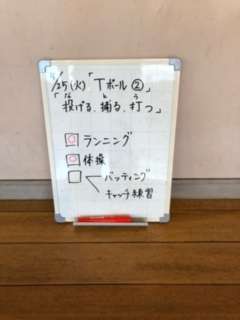 /25(火)「Tボール②」
「投げる、捕る、打つ」
ランニング
体操
バッティング
キャッチ練習